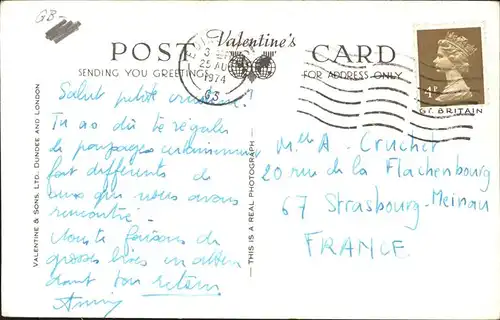 GB-
POST Valentine's CARD
SENDING YOU GREETINGS FOR ADDRESS ONLY
3
25 AU
1974
4P
GT. BRITAIN
VALENTINE & SONS, LTD., DUNDEE AND LONDON
THIS IS A REAL PHOTOGRAPH
Salut petite !
Tu as dû te régaler
de paysages certainement
fort différents de
ceux que nous avons
rencontré.
Nous te faisons de
grosses bises en atten
dant ton retour
Anny
Melle A. Cruchet
20 rue de la Flachenbourg
67 Strasbourg-Meinau
FRANCE